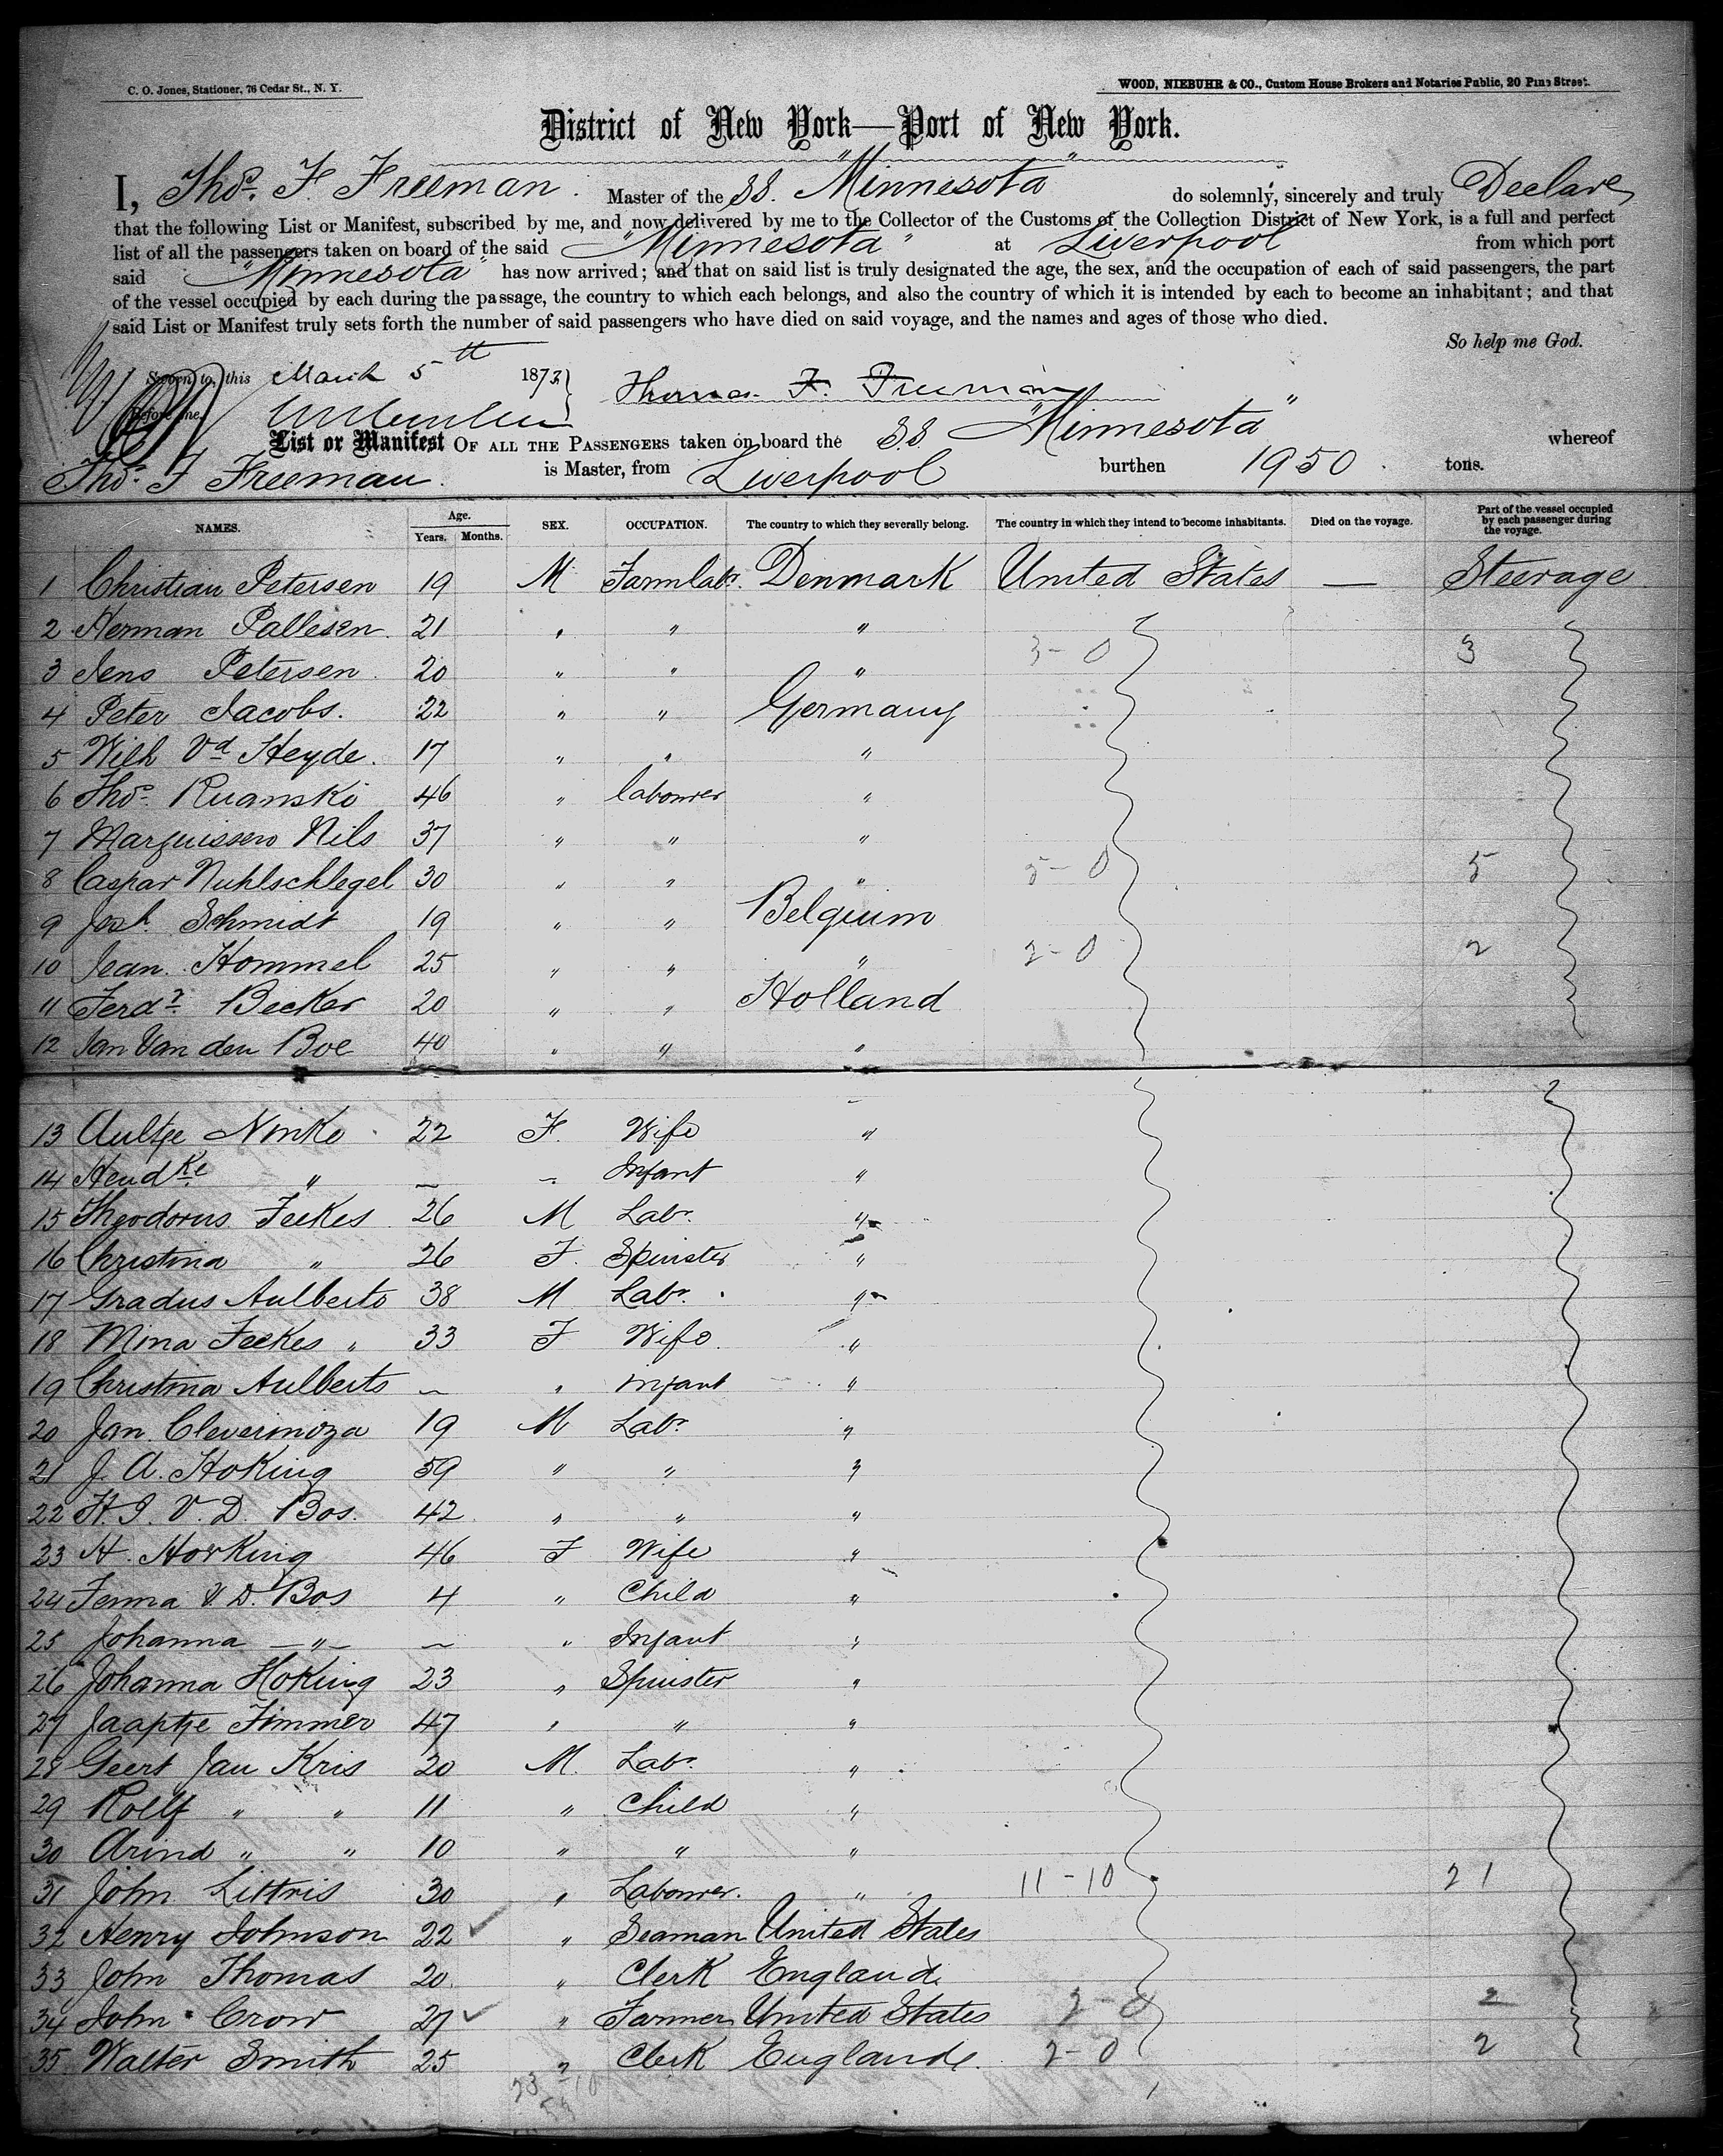 C. O. Jones, Stationer, 76 Cedar St., N. Y.
WOOD, NIEBUHR & CO., Custom House Brokers and Notaries Public, 20 Pine Street.
District of New York—Port of New York.
I, Thos. F. Freeman. Master of the SS. "Minnesota" do solemnly, sincerely and truly Declare
that the following List or Manifest, subscribed by me, and now delivered by me to the Collector of the Customs of the Collection District of New York, is a full and perfect
list of all the passengers taken on board of the said "Minnesota" at Liverpool from which port
said "Minnesota" has now arrived; and that on said list is truly designated the age, the sex, and the occupation of each of said passengers, the part
of the vessel occupied by each during the passage, the country to which each belongs, and also the country of which it is intended by each to become an inhabitant; and that
said List or Manifest truly sets forth the number of said passengers who have died on said voyage, and the names and ages of those who died.
So help me God.
Sworn to, this March 5th 1873
Thomas F. Freeman
Before me,
List or Manifest OF ALL THE PASSENGERS taken on board the SS "Minnesota" whereof
Thos. F Freeman. is Master, from Liverpool burthen 1950. tons.
NAMES. Age. Years. Months. SEX. OCCUPATION. The country to which they severally belong. The country in which they intend to become inhabitants. Died on the voyage. Part of the vessel occupied by each passenger during the voyage.
1 Christian Petersen 19 M Farmlabr. Denmark United States — Steerage
2 Herman Pallesen 21 " " "
3 Jens Petersen 20 " " " 3-0 3
4 Peter Jacobs. 22 " " Germany
5 Wilh Vd Heyde. 17 " " "
6 Thos. Ruanski 46 " labourer "
7 Marquissen Nils 37 " " "
8 Caspar Nuhlschlegel 30 " " " 5-0 5
9 Josh. Schmidt 19 " " Belgium
10 Jean Hommel 25 " " " 2-0 2
11 Ferdd. Becker 20 " " Holland
12 Jan Van den Boe 40 " " "
13 Aultje Ninke 22 F. Wife "
14 Hendke " — " Infant "
15 Theodorus Feekes 26 M Labr. "
16 Christina " 26 F. Spinster "
17 Gradus Aulberts 38 M Labr. "
18 Mina Feekes " 33 F Wife. "
19 Christina Aulberts — " infant "
20 Jan. 19 M Labr. "
21 J. A. HoKing 59 " " "
22 H. J. V. D. Bos. 42 " " "
23 H. HorKing 46 F Wife "
24 Fenna V. D. Bos 4 " Child "
25 Johanna — " — — " Infant "
26 Johanna HoKing 23 " Spinster "
27 Jaaptje Timmer 47 " " "
28 Geert Jan Kris 20 M. Labr. "
29 Rolf " " 11 " Child "
30 Arind " " 10 " " "
31 John Littris 30 " Labourer. " 11-10 21
32 Henry Johnson 22 " Seaman United States
33 John Thomas 20. " Clerk England.
34 John Crow 27 " Farmer United States 2-0 2
35 Walter Smith 25 " Clerk England. 2-0 2